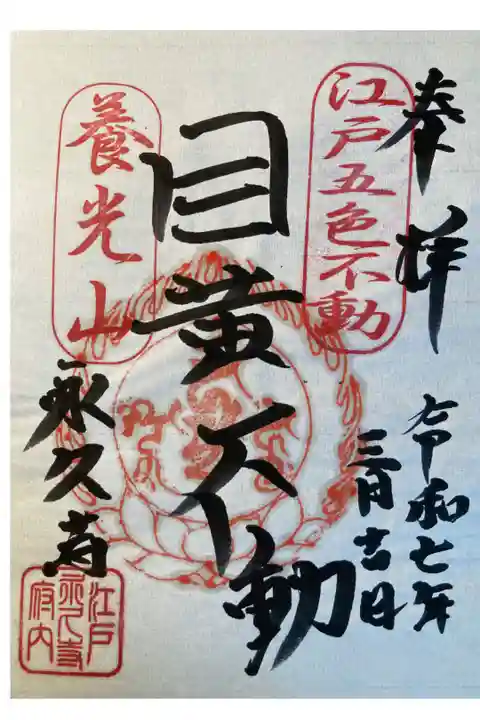 奉拝
江戸五色不動
令和七年
三月吉日
目黄不動
養光山
永久寺
江戸
永久寺
府内